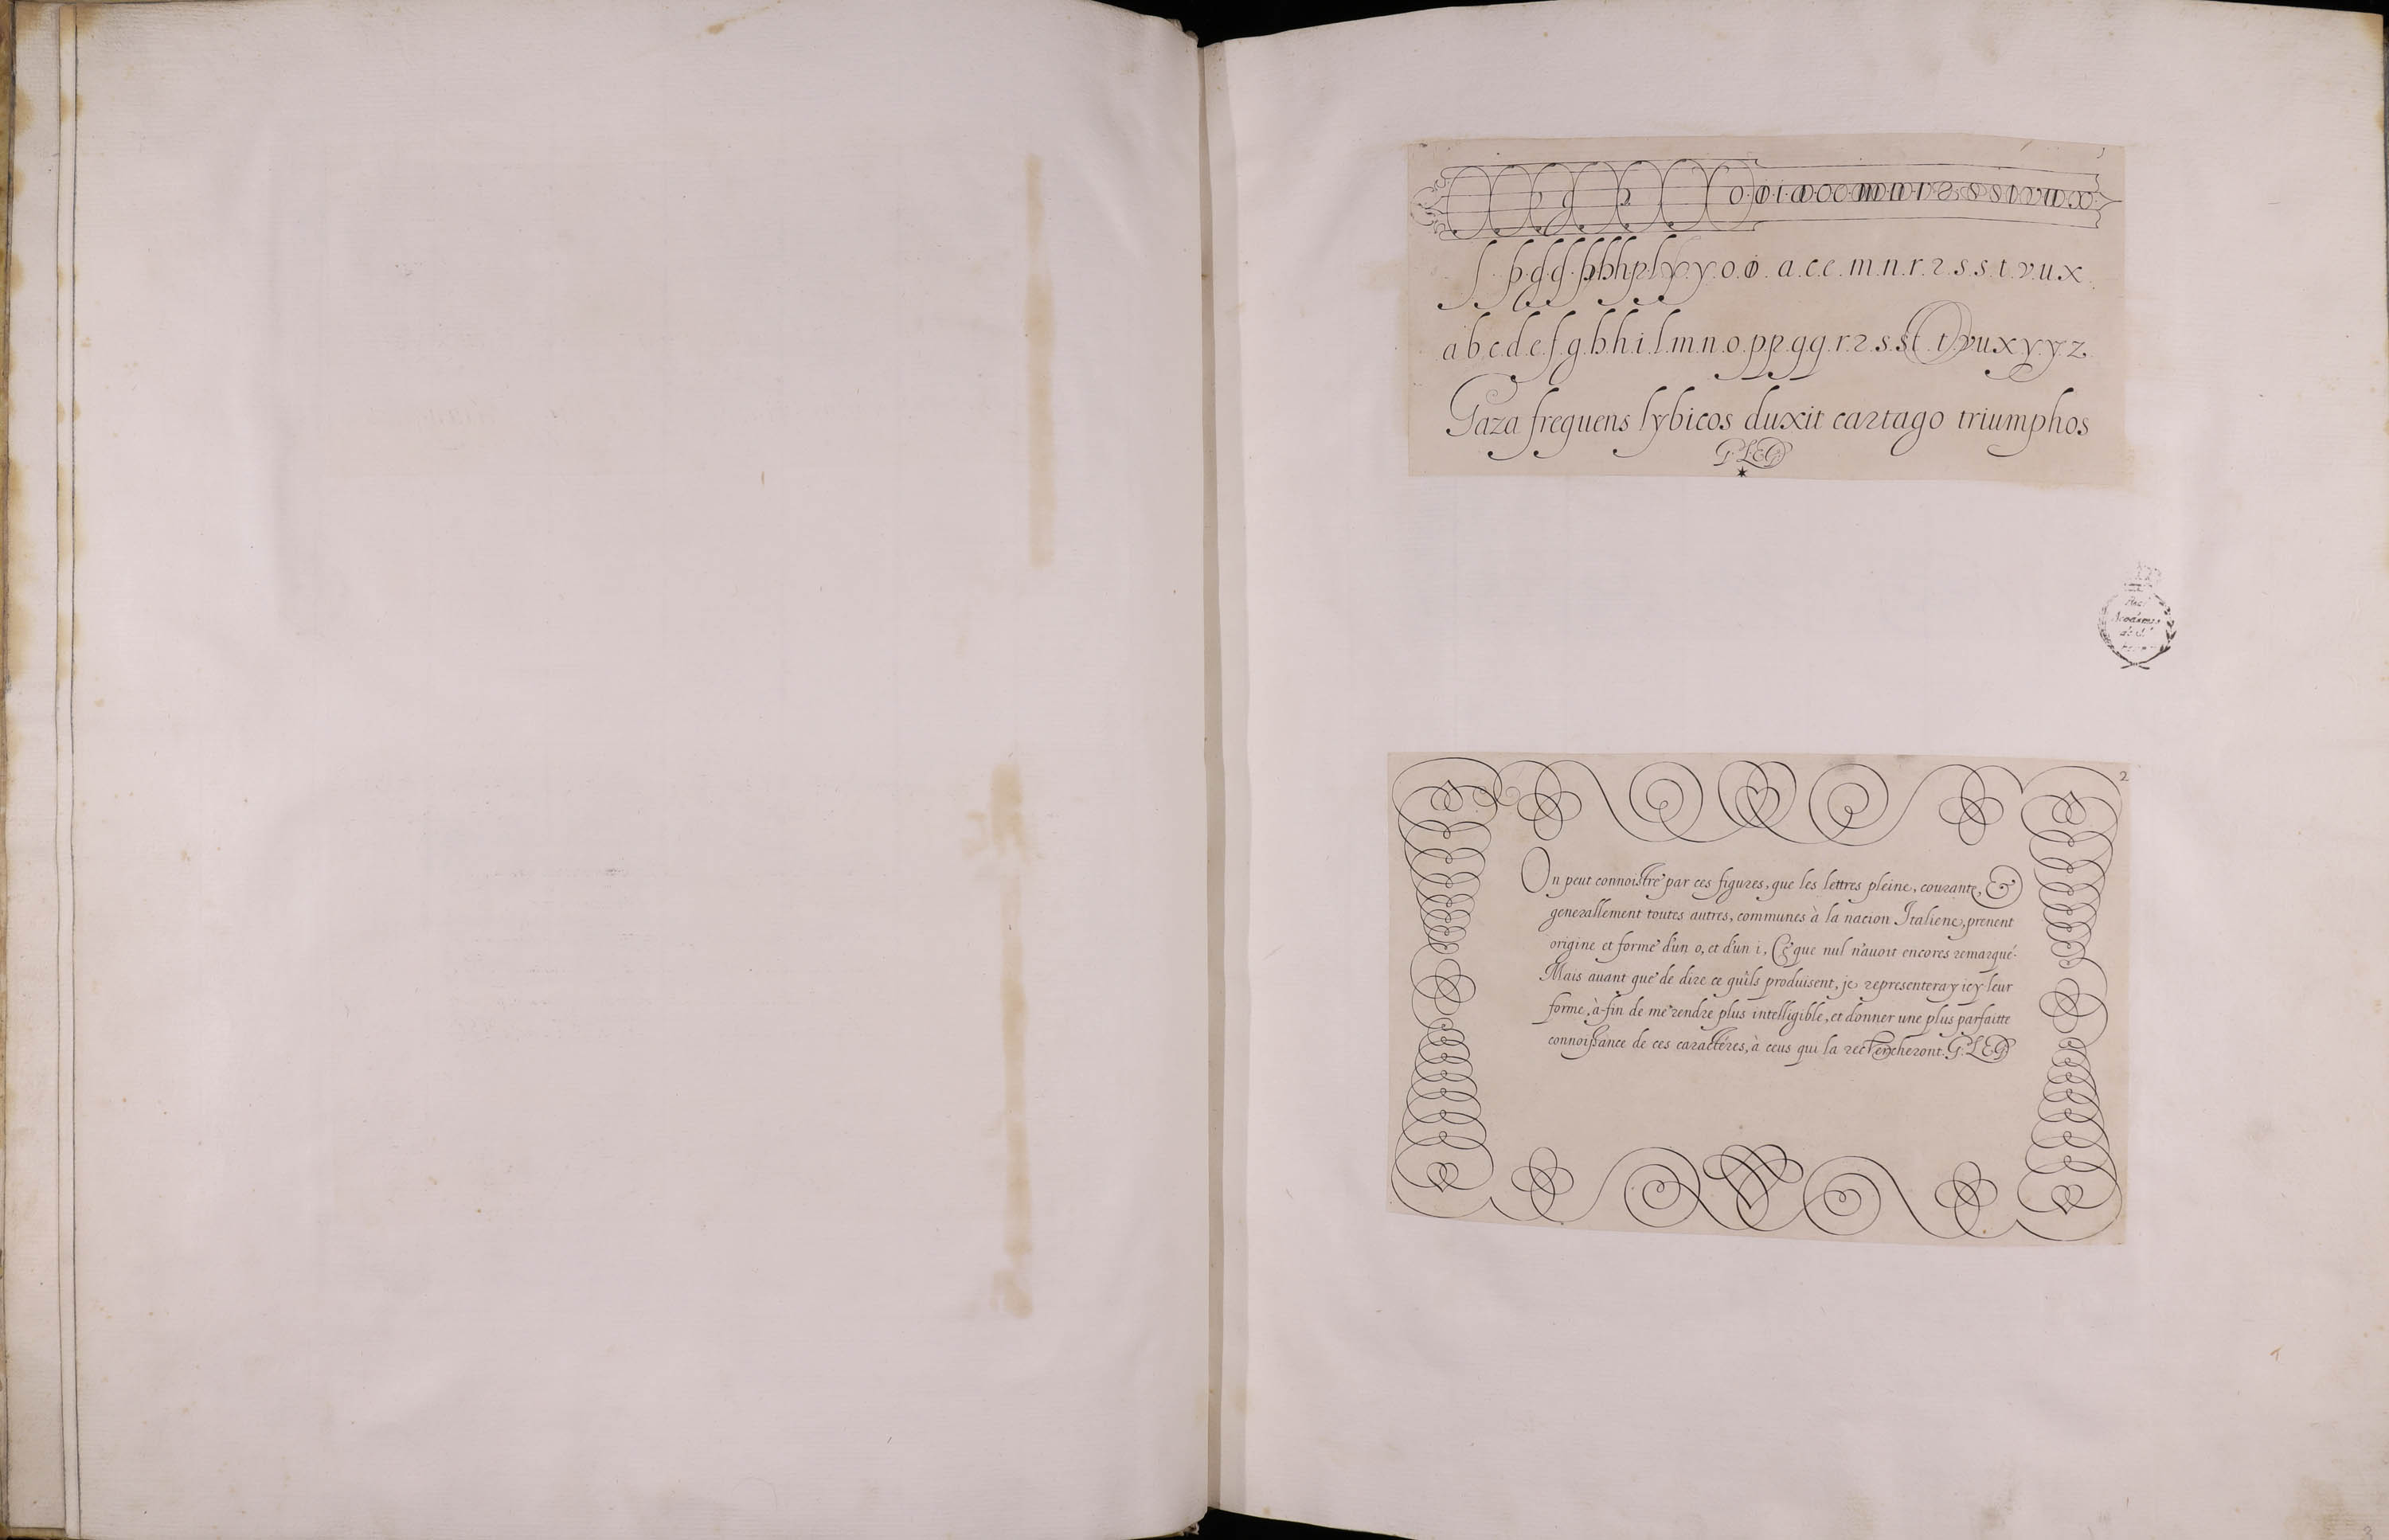 o.o.i.a.o.o.c.m.n.r.2.s.s.t.v.u.x
ſ.þ.g.g.þ.b.h.p.l.y.y.o.o.a.c.e.m.n.r.2.s.s.t.v.u.x.
a.b.c.d.e.f.g.b.h.i.l.m.n.o.p.p.q.q.r.2.s.st.t.v.u.x.y.y.z.
Gaza frequens lybicos duxit cartago triumphos
G.L.E.G
Real
Academia
de S.
2
On peut connoistre par ces figures, que les lettres pleine, courante, &
generallement toutes autres, communes à la nacion Italiene, prenent
origine et forme d'un o, et d'un i, Ce que nul n'auoit encores remarqué.
Mais auant que de dire ce qu'ils produisent, je representeray icy leur
forme, à-fin de me rendre plus intelligible, et donner une plus parfaitte
connoissance de ces caractéres, à ceus qui la rechercheront. G.L.E.G